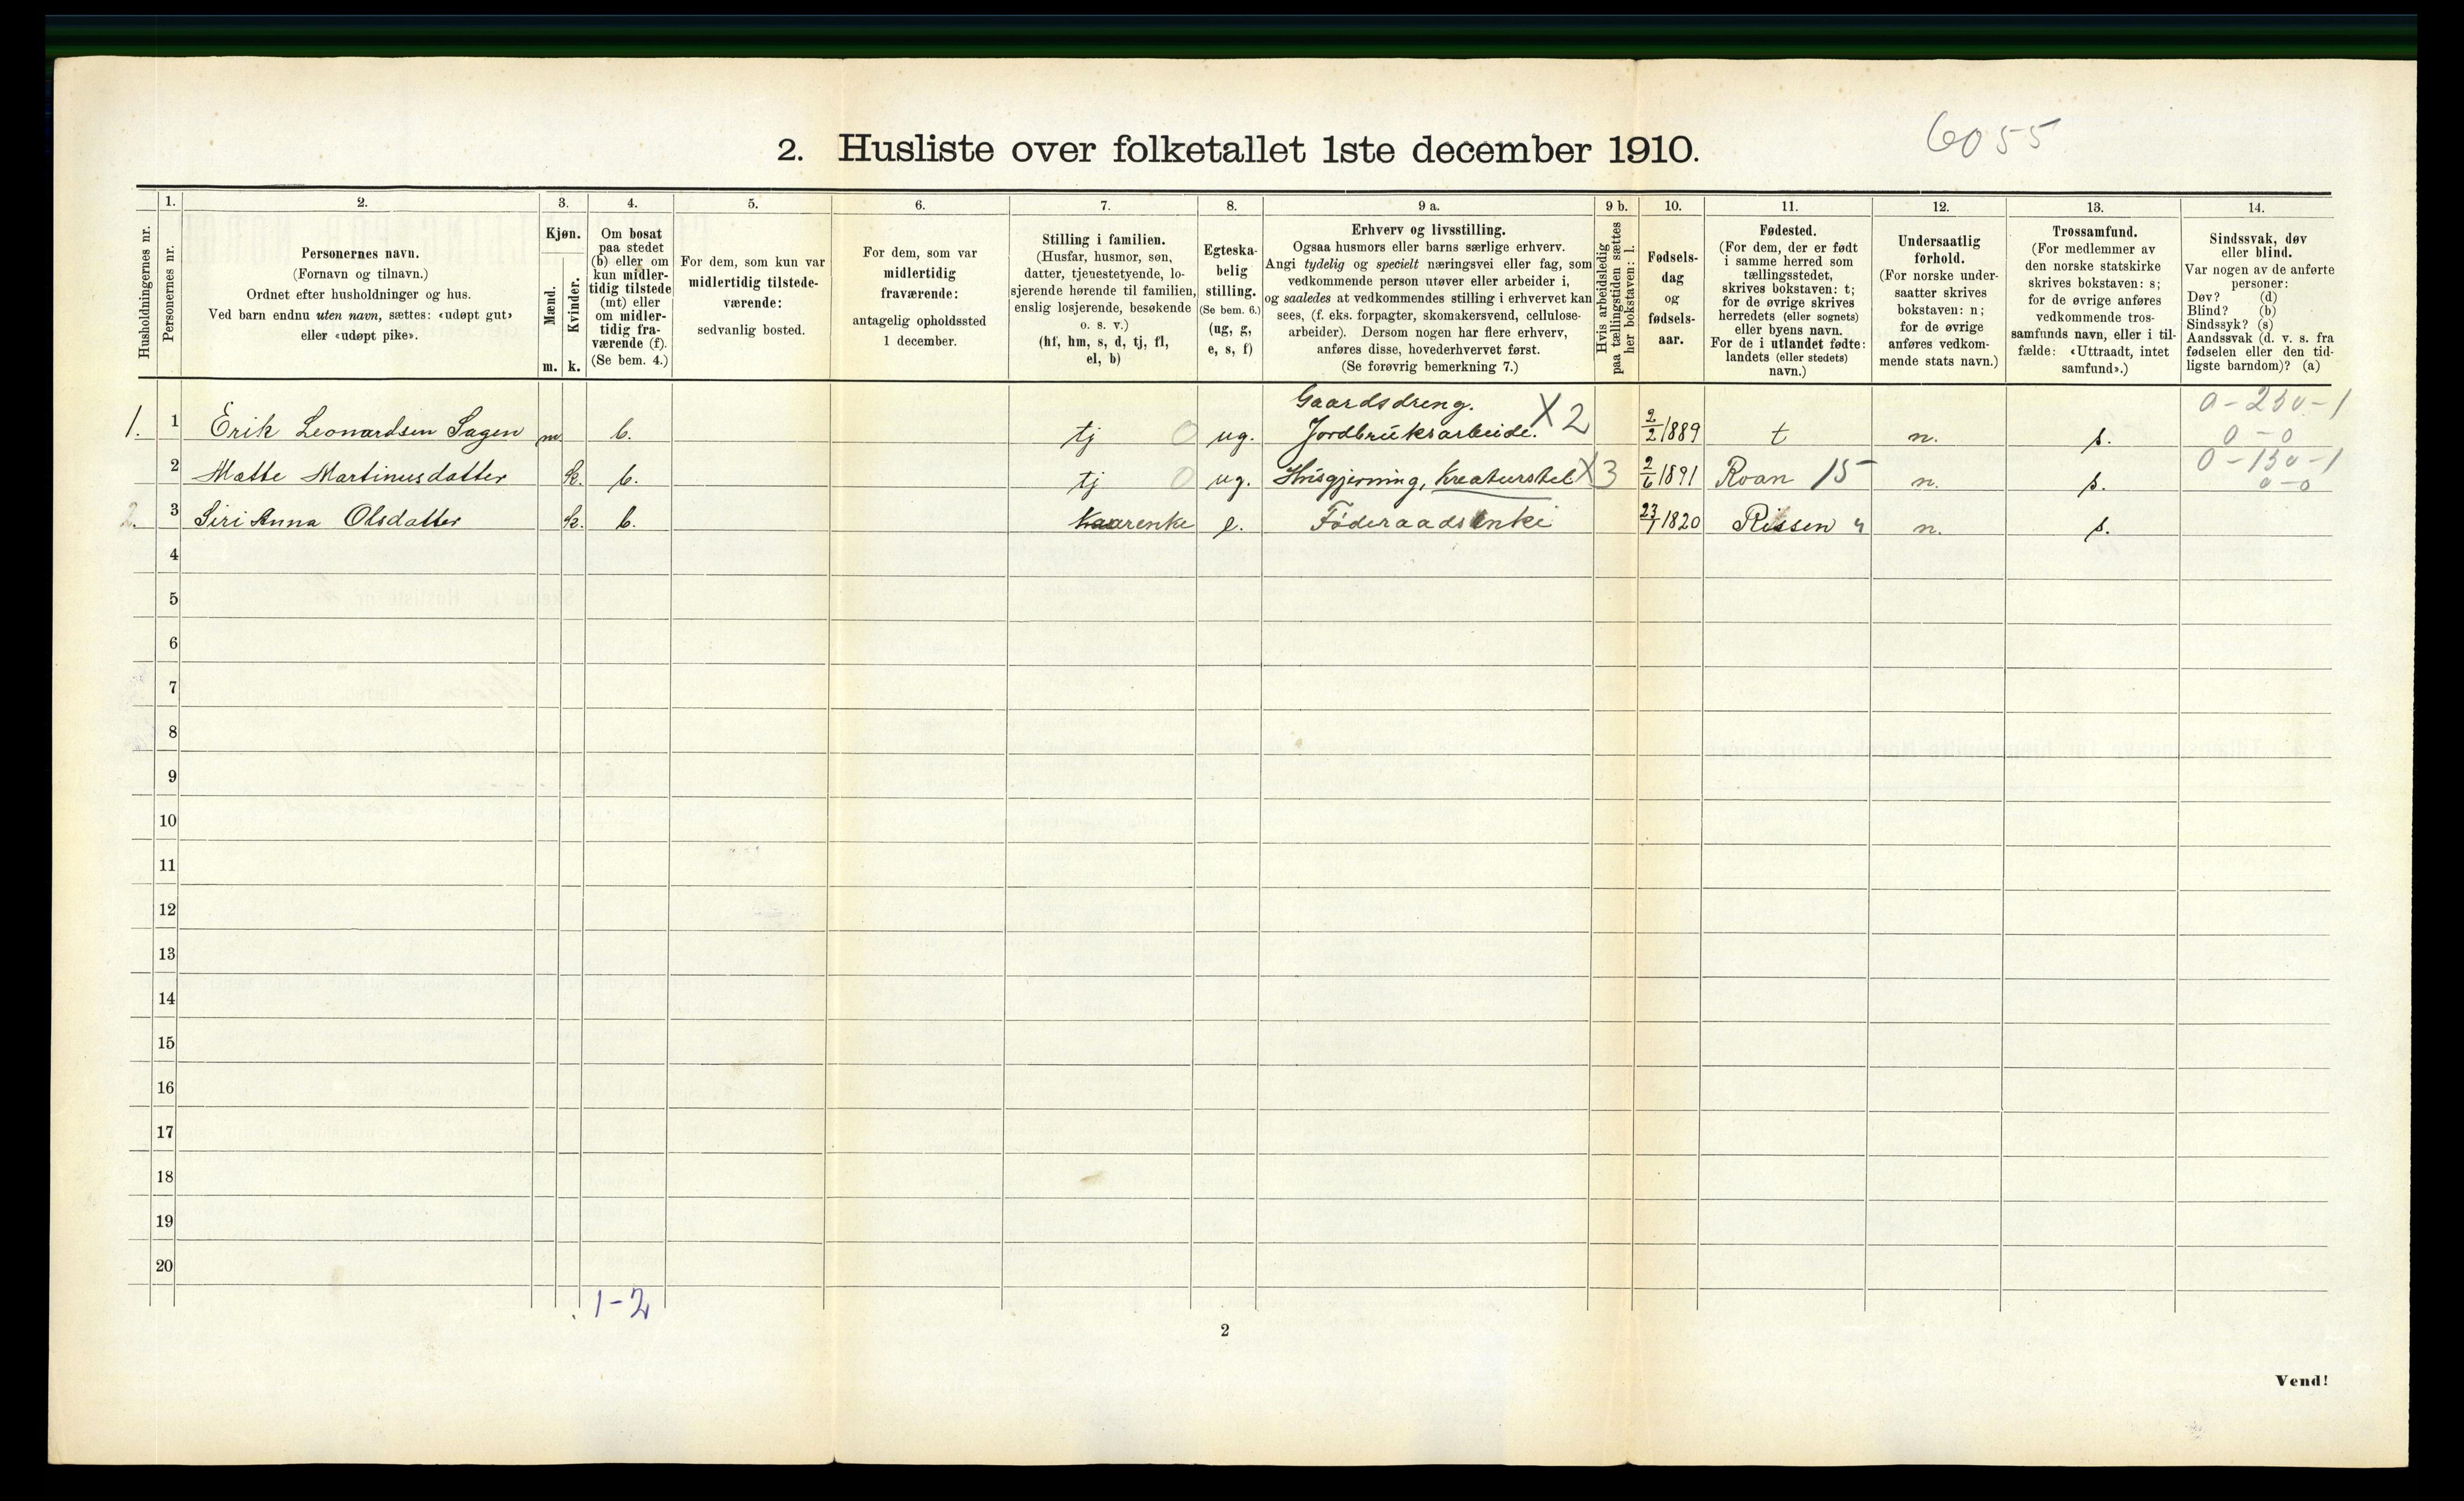 6055
2. Husliste over folketallet 1ste december 1910.
Husholdningernes nr.
1.
Personernes nr.
2.
Personernes navn.
(Fornavn og tilnavn.)
Ordnet efter husholdninger og hus.
Ved barn endnu uten navn, sættes: «udøpt gut»
eller «udøpt pike».
3.
Kjøn.
Mænd.
Kvinder.
m. k.
4.
Om bosat
paa stedet
(b) eller om
kun midler-
tidig tilstede
(mt) eller
om midler-
tidig fra-
værende (f).
(Se bem. 4.)
5.
For dem, som kun var
midlertidig tilstede-
værende:
sedvanlig bosted.
6.
For dem, som var
midlertidig
fraværende:
antagelig opholdssted
1 december.
7.
Stilling i familien.
(Husfar, husmor, søn,
datter, tjenestetyende, lo-
sjerende hørende til familien,
enslig losjerende, besøkende
o. s. v.)
(hf, hm, s, d, tj, fl,
el, b)
8.
Egteska-
belig
stilling.
(Se bem. 6.)
(ug, g,
e, s, f)
9 a.
Erhverv og livsstilling.
Ogsaa husmors eller barns særlige erhverv.
Angi tydelig og specielt næringsvei eller fag, som
vedkommende person utøver eller arbeider i,
og saaledes at vedkommendes stilling i erhvervet kan
sees, (f. eks. forpagter, skomakersvend, cellulose-
arbeider). Dersom nogen har flere erhverv,
anføres disse, hovederhvervet først.
(Se forøvrig bemerkning 7.)
9 b.
Hvis arbeidsledig
paa tællingstiden sættes
her bokstaven: l.
10.
Fødsels-
dag
og
fødsels-
aar.
11.
Fødested.
(For dem, der er født
i samme herred som
tællingsstedet,
skrives bokstaven: t;
for de øvrige skrives
herredets (eller sognets)
eller byens navn.
For de i utlandet fødte:
landets (eller stedets)
navn.)
12.
Undersaatlig
forhold.
(For norske under-
saatter skrives
bokstaven: n;
for de øvrige
anføres vedkom-
mende stats navn.)
13.
Trossamfund.
(For medlemmer av
den norske statskirke
skrives bokstaven: s;
for de øvrige anføres
vedkommende tros-
samfunds navn, eller i til-
fælde: «Uttraadt, intet
samfund».)
14.
Sindssvak, døv
eller blind.
Var nogen av de anførte
personer:
Døv? (d)
Blind? (b)
Sindssyk? (s)
Aandssvak (d. v. s. fra
fødselen eller den tid-
ligste barndom)? (a)
Gaardsdreng. X2 0-250-1
1. 1 Erik Leonardsen Sagen m b. tj 0 ug. Jordbruksarbeide. 2/2 1889 t n. s. 0-0
0-150-1
2 Matte Martinusdatter k. b. tj 0 ug. Husgjerning, Kreaturstel X3 2/6 1891 Roan 15 n. s. 0-0
2. 3 Siri Anna Olsdatter k. b. Kaarenke e. Føderaadsenke 23/1 1820 Rissen n. s.
4
5
6
7
8
9
10
11
12
13
14
15
16
17
18
19
20
1-2
2
Vend!